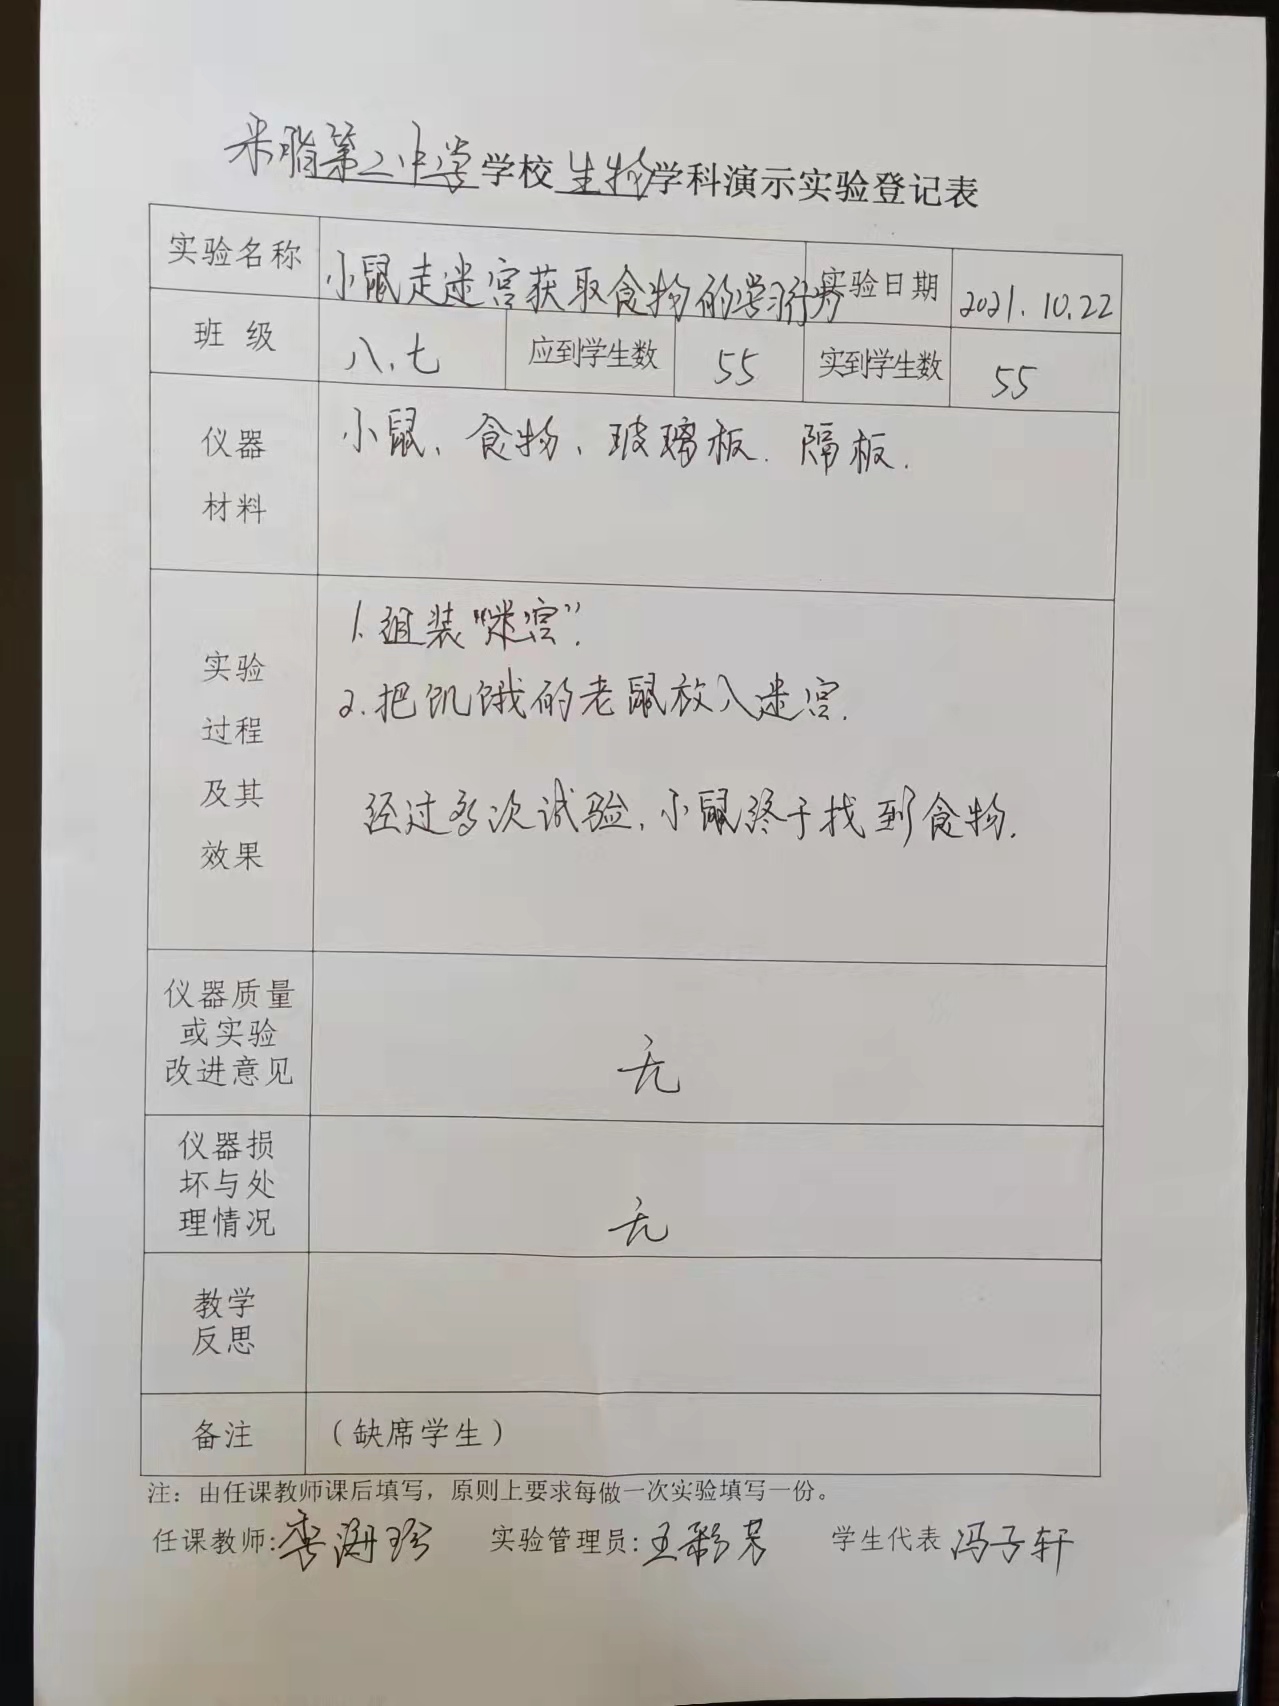 米脂第二中学学校生物学科演示实验登记表
实验名称 小鼠走迷宫获取食物的学习行为 实验日期 2021.10.22
班 级 八、七 应到学生数 55 实到学生数 55
仪器 小鼠、食物、玻璃板、隔板.
材料
1.组装“迷宫”.
实验
2.把饥饿的老鼠放入迷宫.
过程
及其
经过多次试验,小鼠终于找到食物.
效果
仪器质量
或实验
改进意见 无
仪器损
坏与处
理情况 无
教学
反思
备注 (缺席学生)
注：由任课教师课后填写，原则上要求每做一次实验填写一份。
任课教师: 李海珍 实验管理员: 王彩芳 学生代表 冯子轩